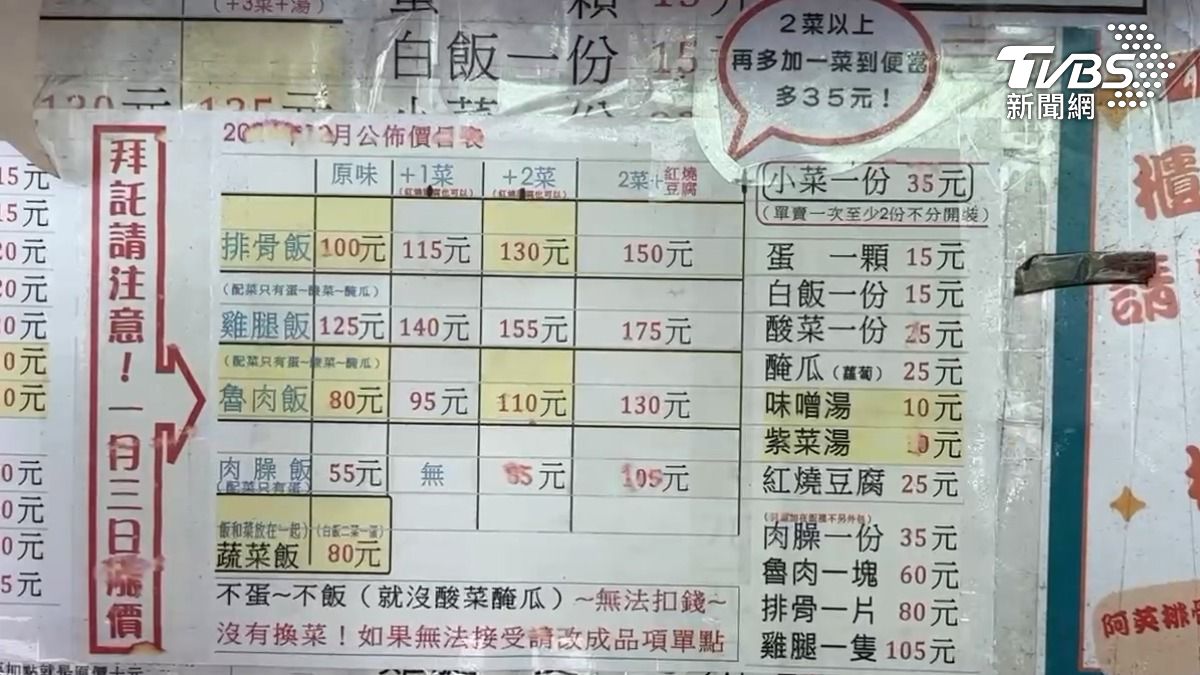 (+3菜+湯)
顆 15元
白飯一份 15
130元 135元
2菜以上
再多加一菜到便當
多35元!
TVBS
新聞網
拜託請注意!一月三日漲價
月公佈價目表
原味 +1菜 +2菜 2菜+紅燒豆腐
排骨飯 100元 115元 130元 150元
(配菜只有蛋~酸菜~醃瓜)
雞腿飯 125元 140元 155元 175元
(配菜只有蛋~酸菜~醃瓜)
魯肉飯 80元 95元 110元 130元
肉臊飯 55元 無 元 105元
(配菜只有蛋)
飯和菜放在一起)(白飯二菜一蛋)
蔬菜飯 80元
不蛋~不飯(就沒酸菜醃瓜)~無法扣錢~
沒有換菜!如果無法接受請改成品項單點
小菜一份 35元
(單賣一次至少2份不分開裝)
蛋 一顆 15元
白飯一份 15元
酸菜一份 25元
醃瓜(蘿蔔) 25元
味噌湯 10元
紫菜湯 元
紅燒豆腐 25元
肉臊一份 35元
魯肉一塊 60元
排骨一片 80元
雞腿一隻 105元
15元
15元
20元
20元
櫃
請
阿英排